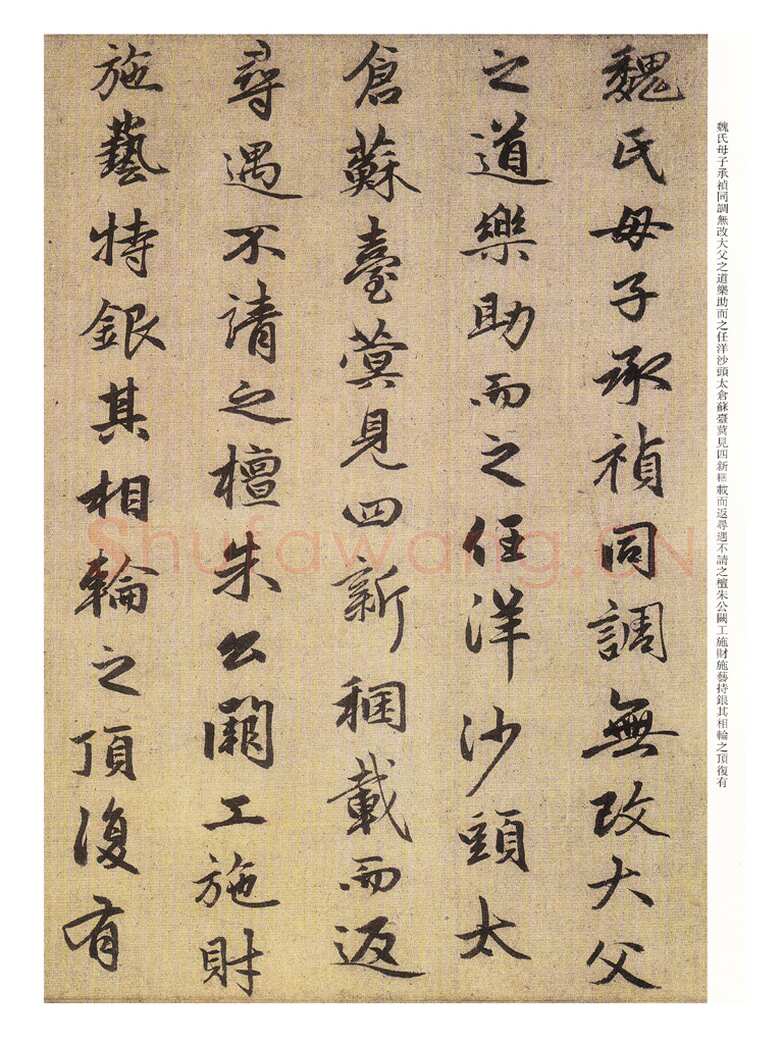 魏氏母子承禎同調無改大父
之道樂助而之任洋沙頭太
倉蘇臺蓂見四新稛載而返
尋遇不請之檀朱公闕工施財
施藝特銀其相輪之頂復有
魏氏母子承禎同調無改大父之道樂助而之任洋沙頭太倉蘇臺蓂見四新稇載而返尋遇不請之檀朱公闕工施財施藝持銀其相輪之頂復有
Shufawang.CN